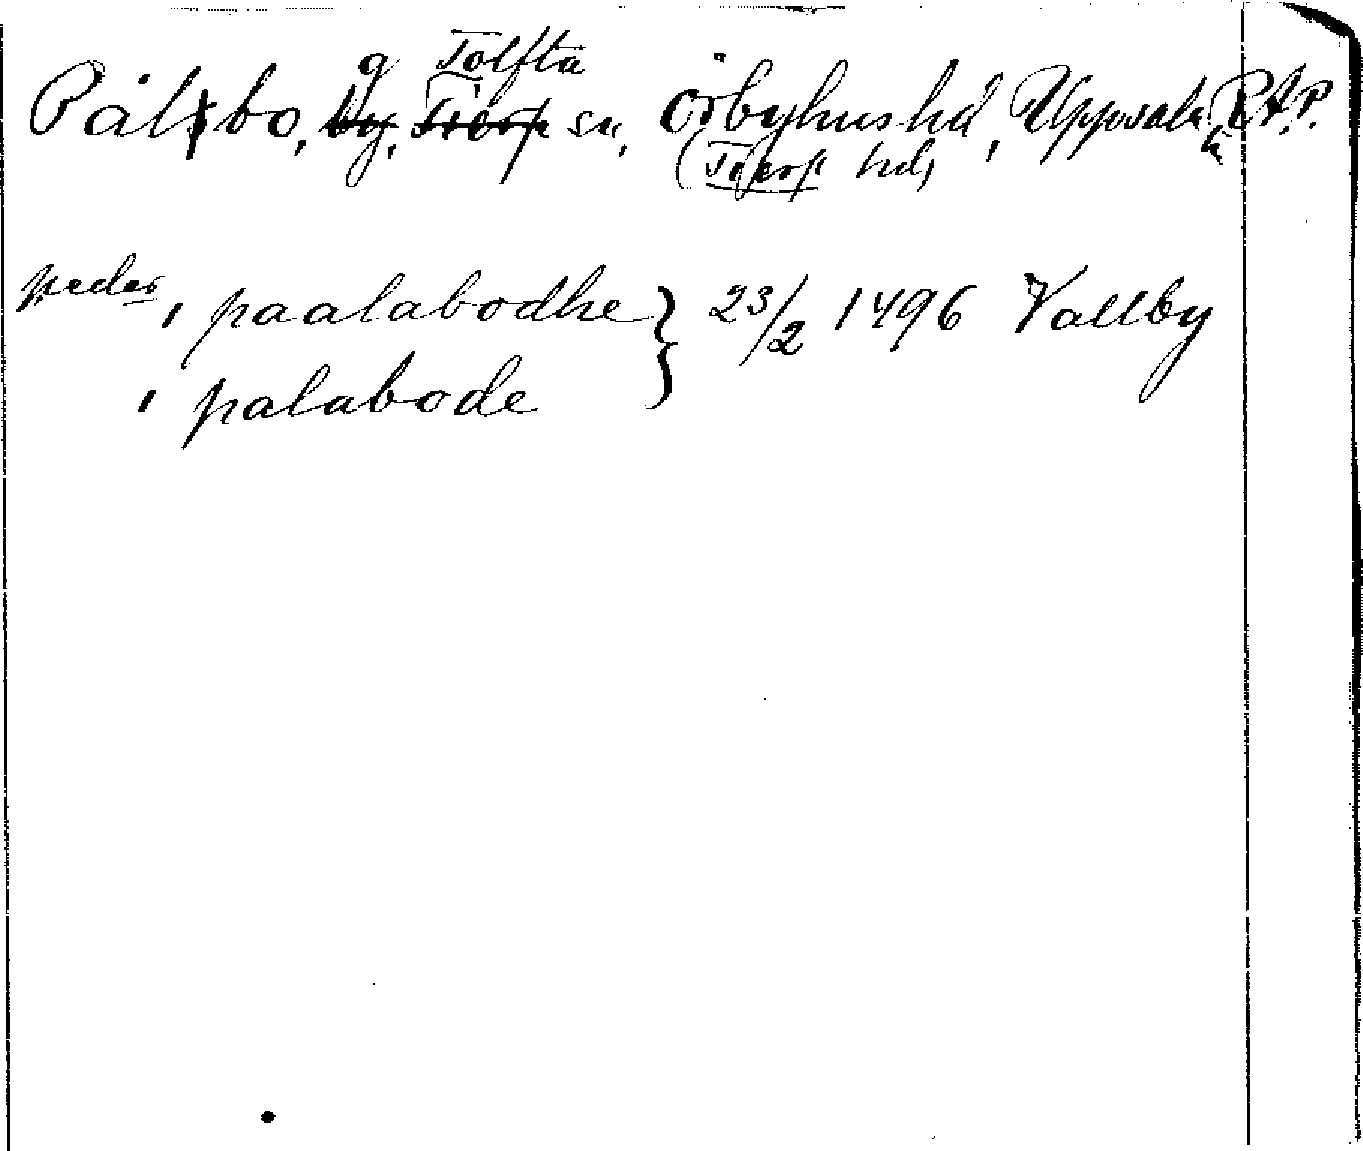 g Tolfta
Pålsbo, by, Tierp sn, Örbyhus hd, Uppsala l. R.A.P.
(Tierp hd)
peder, i paalabodhe } 23/2 1496 Vallby
i palabode